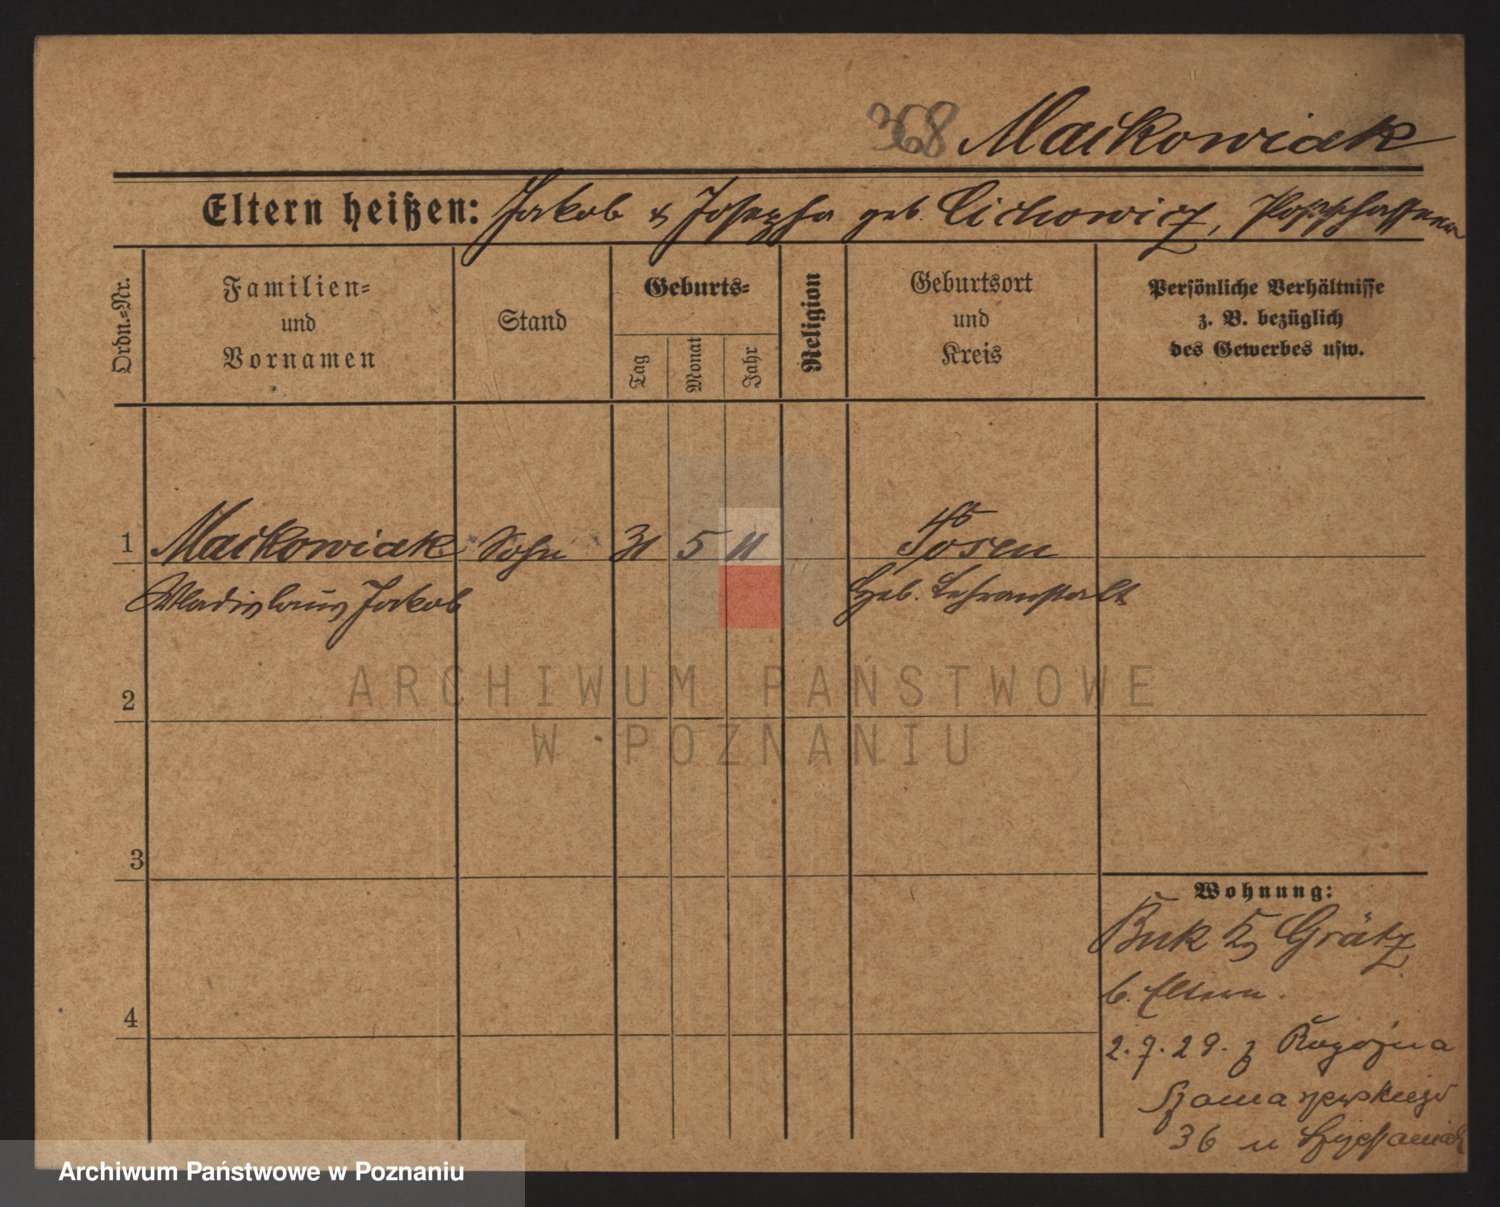 368 Maćkowiak
Eltern heißen: Jakob & Josepha geb. Cichowicz, Postschaffner
Ordn.=Nr.
Familien=
und
Vornamen
Stand
Geburts=
Tag
Monat
Jahr
Religion
Geburtsort
und
Kreis
Persönliche Verhältnisse
z. B. bezüglich
des Gewerbes usw.
1 Maćkowiak Sohn 31 5 11 Posen
Wladislaus Jakob Heb. Lehranstalt
2
3
4
Wohnung:
Buk Grätz
b. Eltern.
2.9.29. z Rogoźna
Szamarzewskiego
36 u
ARCHIWUM PAŃSTWOWE
W POZNANIU
Archiwum Państwowe w Poznaniu